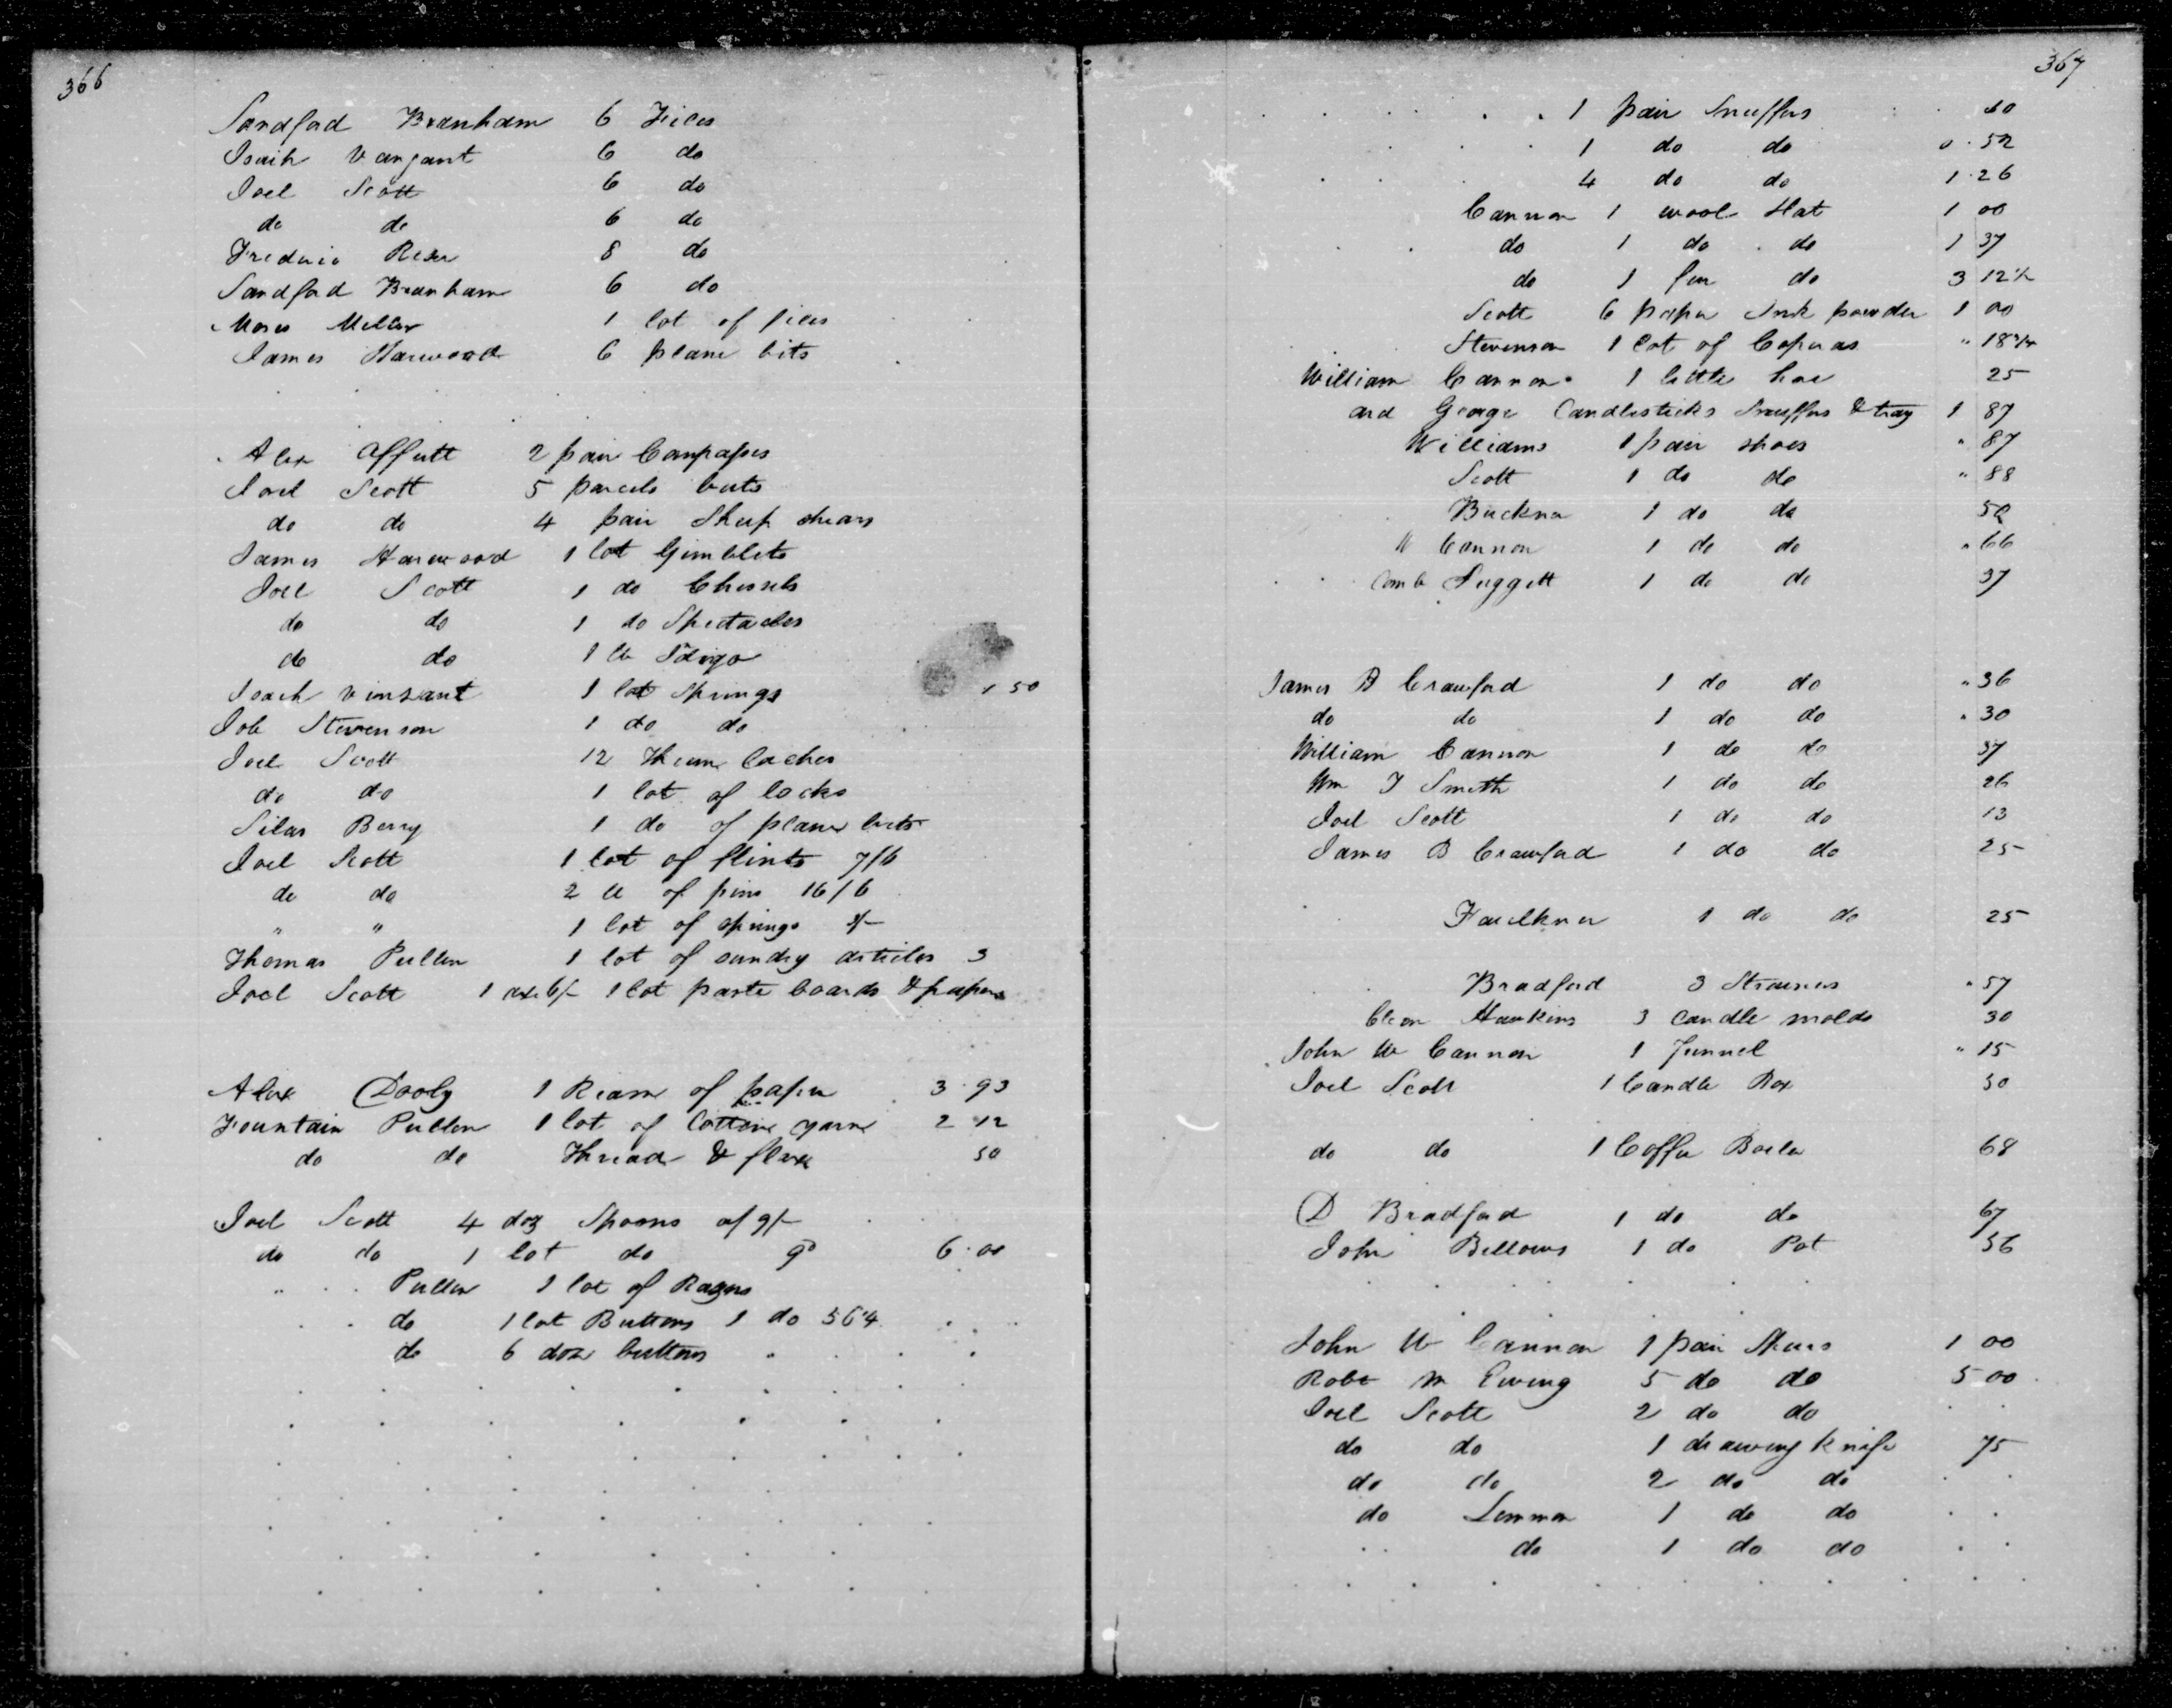 366
Sandford Branham 6 Files
Isaih Vanzant 6 do
Joel Scott 6 do
do do 6 do
Frederic Reser 8 do
Sandford Branham 6 do
Moses Miller 1 lot of files
James Harwood 6 plane bits
Alex Offutt 2 pair Compasses
Joel Scott 5 parcels buts
do do 4 pair Sheep shears
James Harwood 1 lot Gimblets
Joel Scott 1 do Chissels
do do 1 do Spectacles
do do 1 lb Idigo
Isaih Vinzant 1 lot Springs 1 50
Job Stevenson 1 do do
Joel Scott 12 Thum laches
do do 1 lot of locks
Silas Berry 1 do of plane bits
Joel Scott 1 lot of flints 7/6
do do 2 lb of pins 16/6
" " 1 lot of springs
Thomas Pullen 1 lot of sundry articles 3
Joel Scott 1 axe 6/- 1 lot paste boards & papers
Alex Dooly 1 Ream of paper 3.93
Fountain Pullen 1 lot of Cottone yarne 2 12
do do Thread & flax 50
Joel Scott 4 doz Spoons at 9/-
do do 1 lot do 6.00
Pullen 1 lot of Razors
do 1 lot Buttons 1 do 56¼
do 6 doze buttons
367
1 pair Snuffers 60
1 do do 0.52
4 do do 1.26
Cannon 1 wool Hat 1 00
do 1 do do 1 37
do 1 fur do 3 12½
Scott 6 paper Ink powder 1 00
Stevenson 1 lot of Coperas " 18¾
William Cannon 1 little hoe 25
ard George Candlesticks Snuffers & tray 1 87
Williams 1 pair shoes " 87
Scott 1 do do " 88
Buckner 1 do do 50
W Cannon 1 do do " 66
Comb Suggett 1 do do 37
James B Crawford 1 do do " 36
do do 1 do do " 30
William Cannon 1 do do 37
Wm T Smith 1 do do 26
Joel Scott 1 do do 13
James B Crawford 1 do do 25
Faulkner 1 do do 25
Bradford 3 Strainers " 57
Cleon Hawkins 3 candle molds 30
John W Cannon 1 Funnel " 15
Joel Scott 1 Candle Box 50
do do 1 Coffee Boiler 68
D Bradford 1 do do 67
John Bellows 1 do Pot 56
John W Cannon 1 pair Shears 1 00
Robt M Ewing 5 do do 5 00
Joel Scott 2 do do
do do 1 drawing knife 75
do do 2 do do
do Lemmon 1 do do
do 1 do do